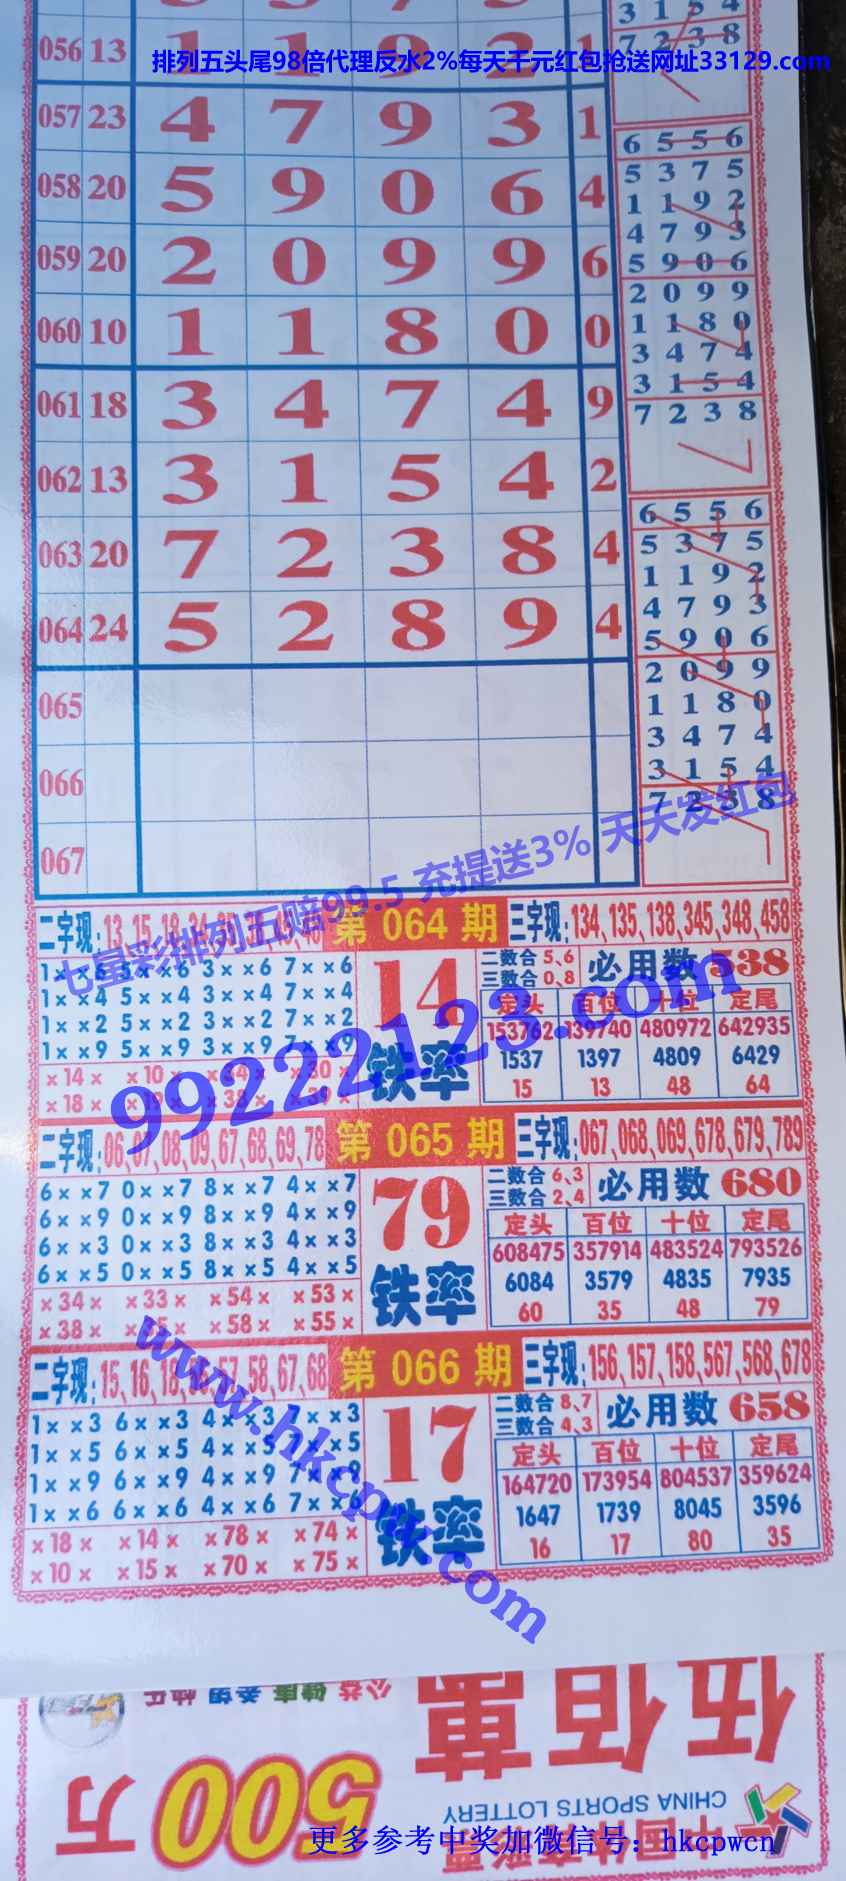 3 1 5 4
056 13 1 1 9 2 1
7 2 3 8
排列五头尾98倍代理反水2%每天千元红包抢送网址33129.com
057 23 4 7 9 3 1
058 20 5 9 0 6 4
059 20 2 0 9 9 6
060 10 1 1 8 0 0
061 18 3 4 7 4 9
062 13 3 1 5 4 2
063 20 7 2 3 8 4
064 24 5 2 8 9 4
065
066
067
6 5 5 6
5 3 7 5
1 1 9 2
4 7 9 3
5 9 0 6
2 0 9 9
1 1 8 0
3 4 7 4
3 1 5 4
7 2 3 8
6 5 5 6
5 3 7 5
1 1 9 2
4 7 9 3
5 9 0 6
2 0 9 9
1 1 8 0
3 4 7 4
3 1 5 4
7 2 3 8
七星彩排列五赔99.5 充提送3% 天天发红包
二字现:13,15,18,34 第 064 期 三字现:134,135,138,345,348,458
1××6 5××6 3××6 7××6
1××4 5××4 3××4 7××4
1××2 5××2 3××2 7××2
1××9 5××9 3××9 7××9
×14× ×10× ×34× ×30×
×18× ×19× ×38× ×39×
14
铁率
二数合 5、6
三数合 0、8
必用数 538
定头 百位 十位 定尾
153762 139740 480972 642935
1537 1397 4809 6429
15 13 48 64
99222123.com
二字现:06,07,08,09,67,68,69,78 第 065 期 三字现:067,068,069,678,679,789
6××7 0××7 8××7 4××7
6××9 0××9 8××9 4××9
6××3 0××3 8××3 4××3
6××5 0××5 8××5 4××5
×34× ×33× ×54× ×53×
×38× ×58× ×55×
79
铁率
二数合 6、3
三数合 2、4
必用数 680
定头 百位 十位 定尾
608475 357914 483524 793526
6084 3579 4835 7935
60 35 48 79
www.hkcpw.com
二字现:15,16,18,56,57,58,67,68 第 066 期 三字现:156,157,158,567,568,678
1××3 6××3 4××3 7××3
1××5 6××5 4××5 7××5
1××9 6××9 4××9 7××9
1××6 6××6 4××6 7××6
×18× ×14× ×78× ×74×
×10× ×15× ×70× ×75×
17
铁率
二数合 8、7
三数合 4、3
必用数 658
定头 百位 十位 定尾
164720 173954 804537 359624
1647 1739 8045 3596
16 17 80 35
公益 健康 希望 快乐
伍佰萬
500万
CHINA SPORTS LOTTERY
中国体育彩票
更多参考中奖加微信号: hkcpwcn